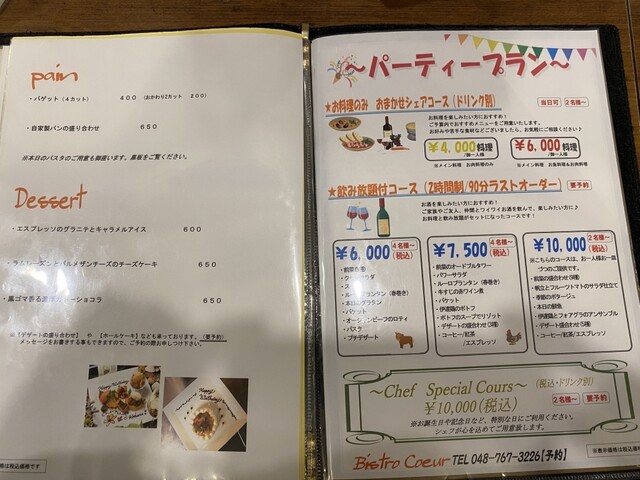 pain
・バゲット（４カット） ４００ （おかわり2カット ２００）
・自家製パンの盛り合わせ ６５０
※本日のパスタのご用意も御座います。黒板をご覧ください。
Dessert
・エスプレッソのグラニテとキャラメルアイス ６００
・ラムレーズンとパルメザンチーズのチーズケーキ ６５０
・黒ゴマ香る ショコラ ６５０
※【デザートの盛り合わせ】 や 【ホールケーキ】なども承っております。（要予約）
メッセージをお書きする事もできますので、ご予約の際お申しつけ下さい。
格は税込価格です
～パーティープラン～
★お料理のみ おまかせシェアコース（ドリンク別） 当日可 2名様～
お料理を楽しみたい方におすすめ！
ご予算内でおすすめメニューをご用意いたします。
お好みや苦手な食材などございましたら、お気軽にご相談ください♪
￥4,000料理 /御一人様
￥6,000料理 /御一人様
※メイン料理 お肉料理のみ
※メイン料理 お魚料理&お肉料理
★飲み放題付コース（2時間制/90分ラストオーダー） 要予約
お酒を楽しみたい方におすすめ！
ご家族やご友人、仲間とワイワイお酒を飲んで、楽しんで♪
お料理と飲み放題がセットになったコースです！
￥6,000 4名様～ (税込)
・バゲット
・オージービーフのロティ
・パスタ
・プチデザート
￥7,500 4名様～ (税込)
・前菜のオードブルタワー
・パワーサラダ
・ルーロブランタン（春巻き）
・牛すじの赤ワイン煮
・バケット
・伊達鶏のポトフ
・ポトフのスープでリゾット
・デザート盛合わせ(3種)
・コーヒー/紅茶
/エスプレッソ
￥10,000 2名様～ (税込)
※こちらのコースは、お一人様お一皿
づつのご提供です。
・前菜の盛合わせ(5種)
・帆立とフルーツトマトのサラダ仕立て
・季節のポタージュ
・本日の鮮魚
・伊達鶏とフォアグラのアンサンブル
・デザート盛合わせ(5種)
・コーヒー/紅茶/エスプレッソ
～Chef Special Cours～ (税込・ドリンク別)
￥10,000(税込) 2名様～ 要予約
※お誕生日や記念日など、特別な日にご利用ください。
シェフが心を込めてご用意致します。
Bistro Coeur TEL 048-767-3226【予約】
※表示価格は税込価格